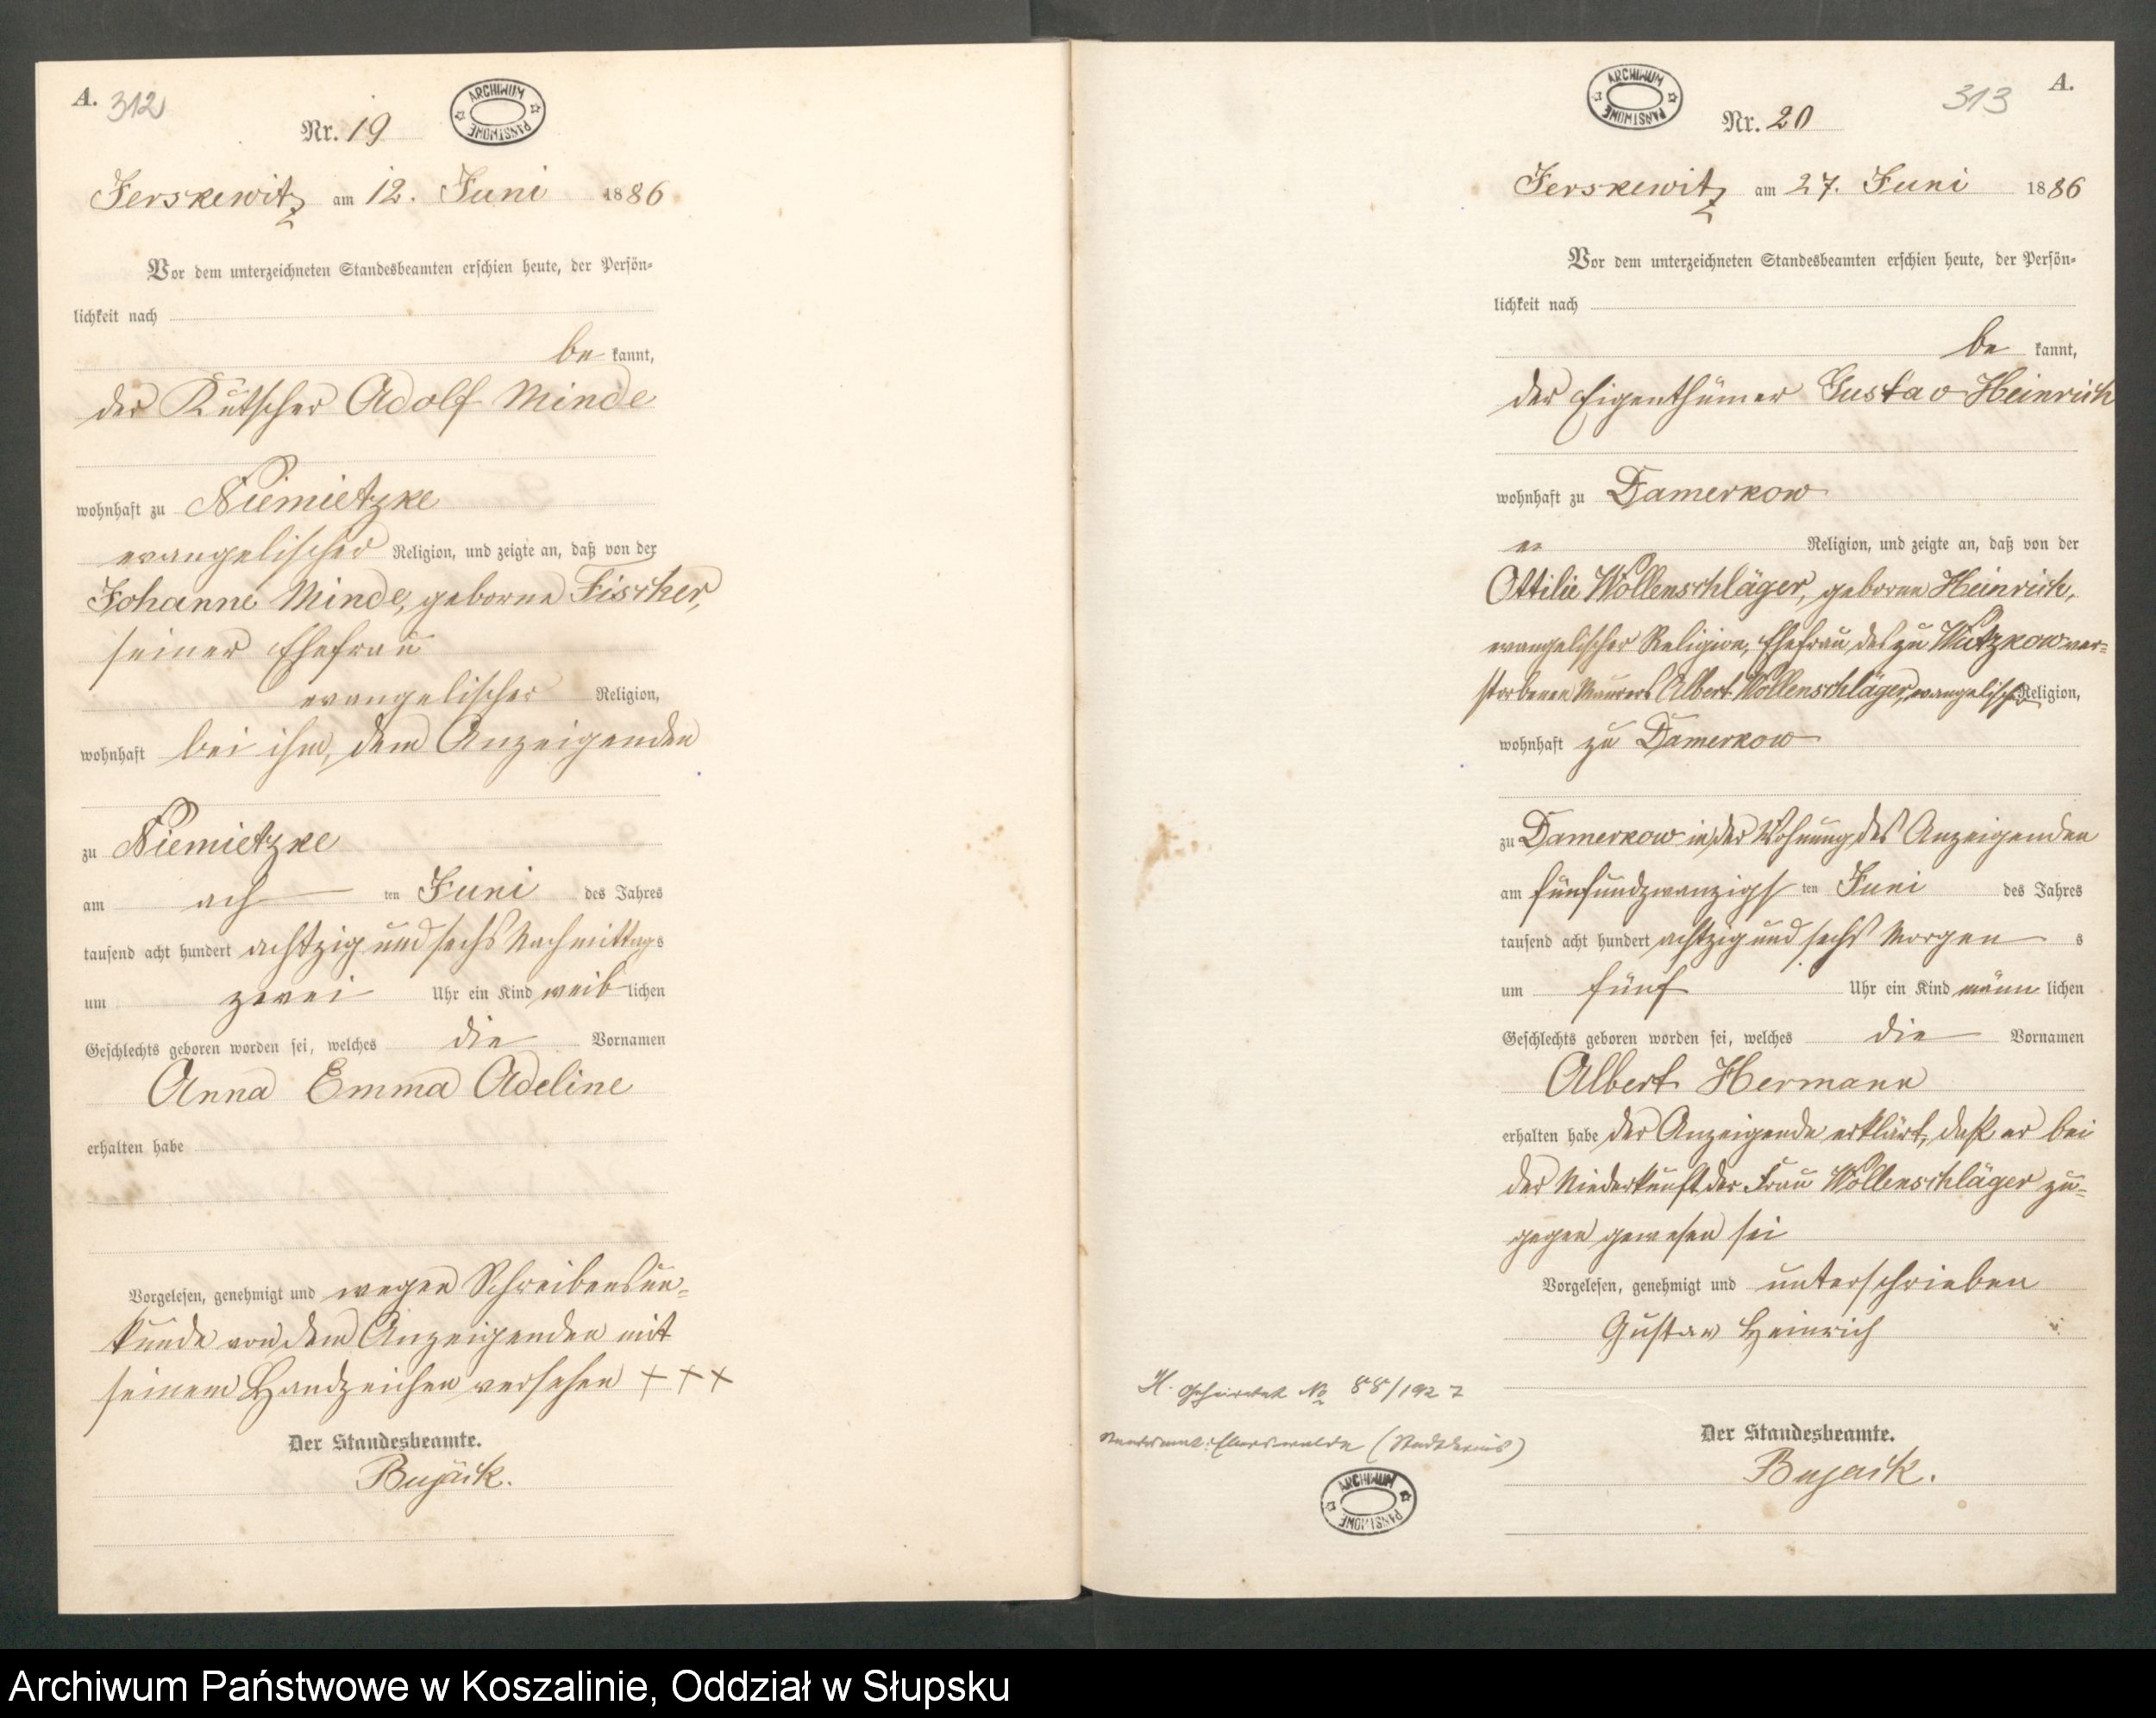 A. 312
ARCHIWUM PAŃSTWOWE
Nr. 19
Jerskewitz am 12. Juni 1886
Vor dem unterzeichneten Standesbeamten erschien heute, der Persön-
lichkeit nach
be kannt,
der Kutscher Adolf Minde
wohnhaft zu Niemietzke
evangelischer Religion, und zeigte an, daß von der
Johanne Minde, geborne Fischer,
seiner Ehefrau
evangelischer Religion,
wohnhaft bei ihm, dem Anzeigenden
zu Niemietzke
am ach ten Juni des Jahres
tausend acht hundert achtzig und sechs Nachmittags
um zwei Uhr ein Kind weib lichen
Geschlechts geboren worden sei, welches die Vornamen
Anna Emma Adeline
erhalten habe
Vorgelesen, genehmigt und wegen Schreibensun-
kunde von dem Anzeigenden mit
seinem Handzeichen versehen + + +
Der Standesbeamte.
Bujack.
313 A.
ARCHIWUM PAŃSTWOWE
Nr. 20
Jerskewitz am 27. Juni 1886
Vor dem unterzeichneten Standesbeamten erschien heute, der Persön-
lichkeit nach
be kannt,
der Eigenthümer Gustav Heinrich
wohnhaft zu Damerkow
Religion, und zeigte an, daß von der
Ottilie Wollenschläger, geborne Heinrich,
evangelischer Religion, Ehefrau des zu Wutzkow ver-
storbenen Maurers Albert Wollenschläger, evangelisch Religion,
wohnhaft zu Damerkow
zu Damerkow in der Wohnung des Anzeigenden
am fünfundzwanzigs ten Juni des Jahres
tausend acht hundert achtzig und sechs Morgen s
um fünf Uhr ein Kind männ lichen
Geschlechts geboren worden sei, welches die Vornamen
Albert Hermann
erhalten habe der Anzeigende erklärt, daß er bei
der Niederkunft der Frau Wollenschläger zu-
gegen gewesen sei
Vorgelesen, genehmigt und unterschrieben
Gustav Heinrich
Der Standesbeamte.
Bujack.
H. Geheiratet No 88/1927
Standesamt: Eberswalde (Stadtkreis)
ARCHIWUM PAŃSTWOWE
Archiwum Państwowe w Koszalinie, Oddział w Słupsku